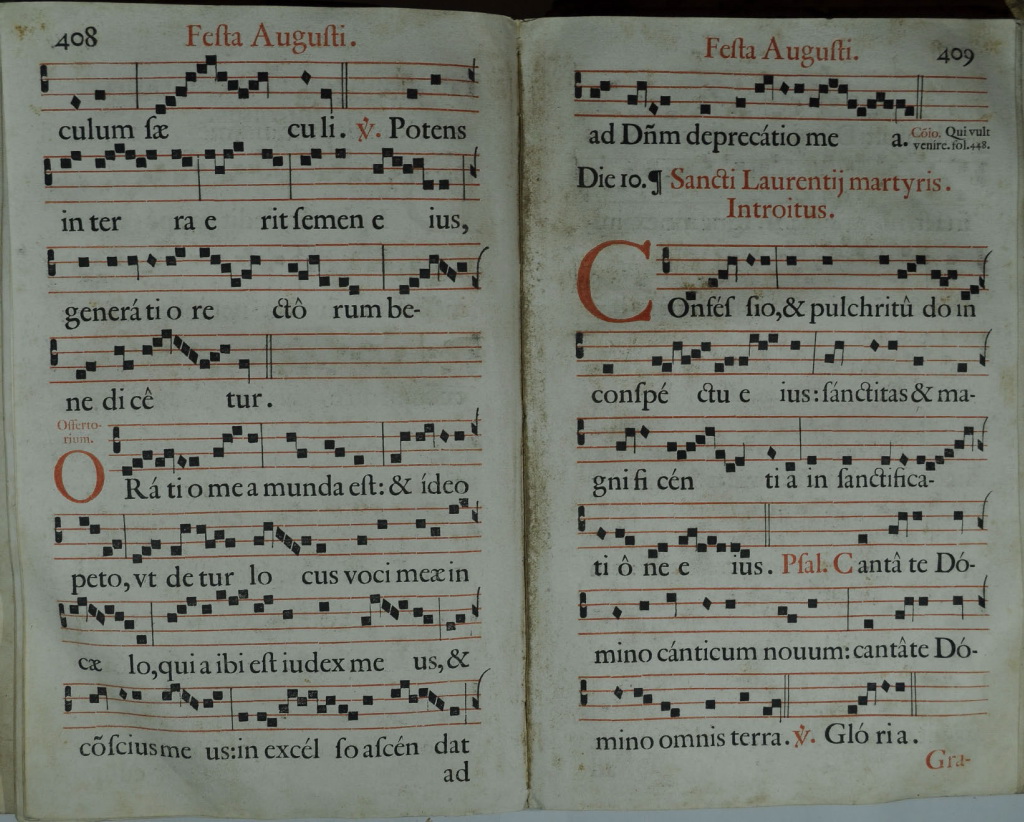 408 Festa Augusti.
culum sæ culi. ℣. Potens
in ter ra e rit semen e ius,
generá ti o re ctô rum be-
ne di cê tur.
Offerto-
rium.
ORá ti o me a munda est: & ídeo
peto, vt de tur lo cus voci meæ in
cæ lo, qui a ibi est iudex me us, &
cõscius me us: in excél so ascén dat
ad
Festa Augusti. 409
ad Dñm deprecátio me a. Cõio. Qui vult
venire. fol. 448.
Die 10. ¶ Sancti Laurentij martyris.
Introitus.
COnfés sio, & pulchritû do in
conspé ctu e ius: sánctitas & ma-
gni fi cén ti a in sanctifica-
ti ô ne e ius. Psal. Cantâ te Dó-
mino cánticum nouum: cantâte Dó-
mino omnis terra. ℣. Gló ri a.
Gra-